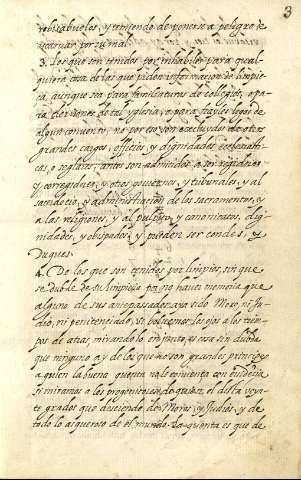 3
rebisabuelos, y temiendo de ponerse a peligro de
y casar por su mal.
3. Los que son tenidos por inhabiles para qual
quiera cosa de las que piden informacion de limpie
ça, aunque sea para familiaturas de collegio, o pa
ra clerizones de tal yglesia, o para frayles legos de
algun convento, no por eso son excluydos de otros
grandes cargos, officios, y dignidades ecclesiasti
cas o seglares, antes son admitidos a ser regidores
y corregidores, y otros goviernos, y tribunales, y al
sacerdocio, y administracion de los sacramentos, y
a las religiones, y al pulpito, y canonicatos, dig
nidades, y obispados, y pueden ser condes, y
Duques.
4. De los que son tenidos por limpios, sin que
se dubde de su limpieza pa no haver memoria que
alguno de sus antepasados aya sido Moro, ni Ju
dio, ni penitenciado, si bolvemos los ojos a los tiem
pos de atras mirandolo en junto, es cosa sin dubda
que ninguno ay de los que no son grandes principes
a quien la buena quenta no le convenza con evidencia
si miramos a los progenitores de quien el dista veyn
te grados que desciende de Moros, y Judios, y de
todo lo asqueroso de el mundo. La quenta es que de